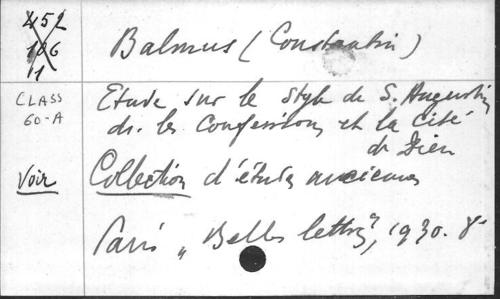 452
106
11
Balmus (Constantin)
CLASS
60-A
Etude sur le style de S. Augustin
ds. les Confessions et la Cité
de Dieu
Voir
Collection d'études anciennes
Paris „Belles lettres”, 1930. 8-